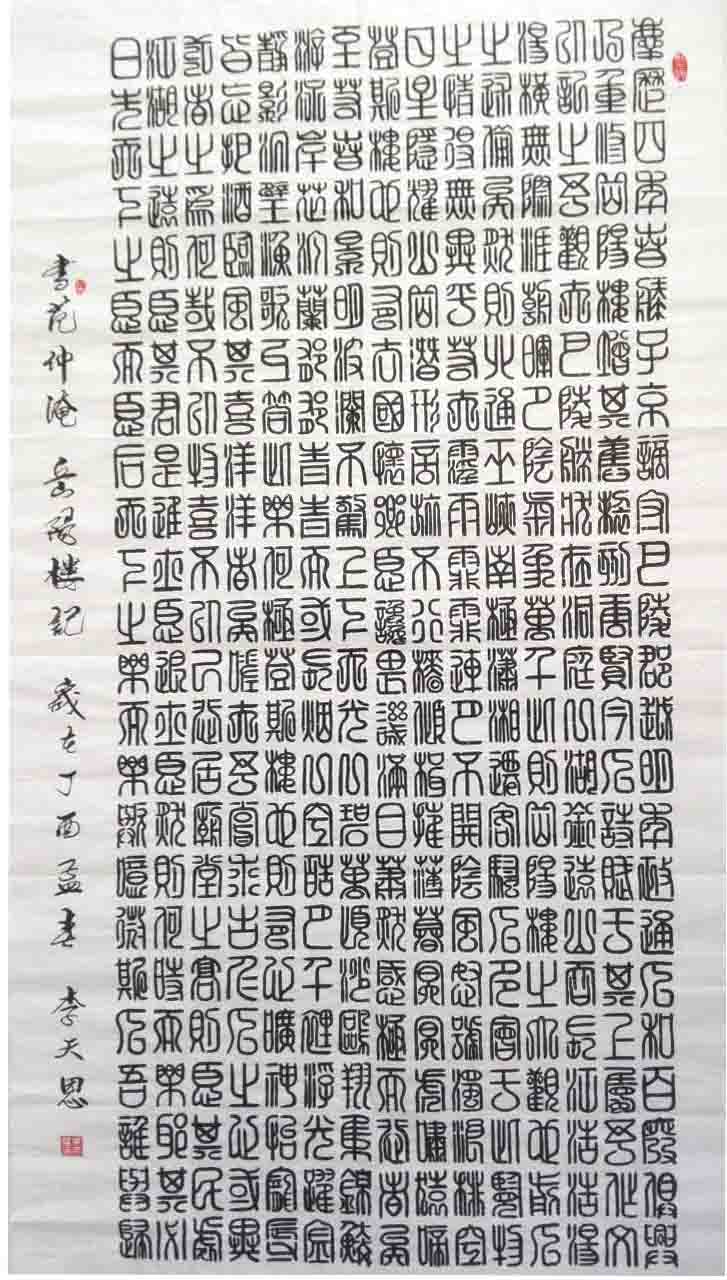 慶歷四年春滕子京謫守巴陵郡越明年政通人和百廢俱興
乃重修岳陽樓增其舊制刻唐賢今人詩賦于其上屬予作文
以記之予觀夫巴陵勝狀在洞庭一湖銜遠山吞長江浩浩湯
湯橫無際涯朝暉夕陰氣象萬千此則岳陽樓之大觀也前人
之述備矣然則北通巫峽南極瀟湘遷客騷人多會于此覽物
之情得無異乎若夫霪雨霏霏連月不開陰風怒號濁浪排空
日星隱耀山岳潛形商旅不行檣傾楫摧薄暮冥冥虎嘯猿啼
登斯樓也則有去國懷鄉憂讒畏譏滿目蕭然感極而悲者矣
至若春和景明波瀾不驚上下天光一碧萬頃沙鷗翔集錦鱗
游泳岸芷汀蘭郁郁青青而或長烟一空皓月千里浮光躍金
靜影沉璧漁歌互答此樂何極登斯樓也則有心曠神怡寵辱
皆忘把酒臨風其喜洋洋者矣嗟夫予嘗求古仁人之心或異
二者之為何哉不以物喜不以己悲居廟堂之高則憂其民處
江湖之遠則憂其君是進亦憂退亦憂然則何時而樂耶其必
曰先天下之憂而憂后天下之樂而樂歟噫微斯人吾誰與歸
書范仲淹 岳陽樓記 歲在丁酉孟春 李天恩